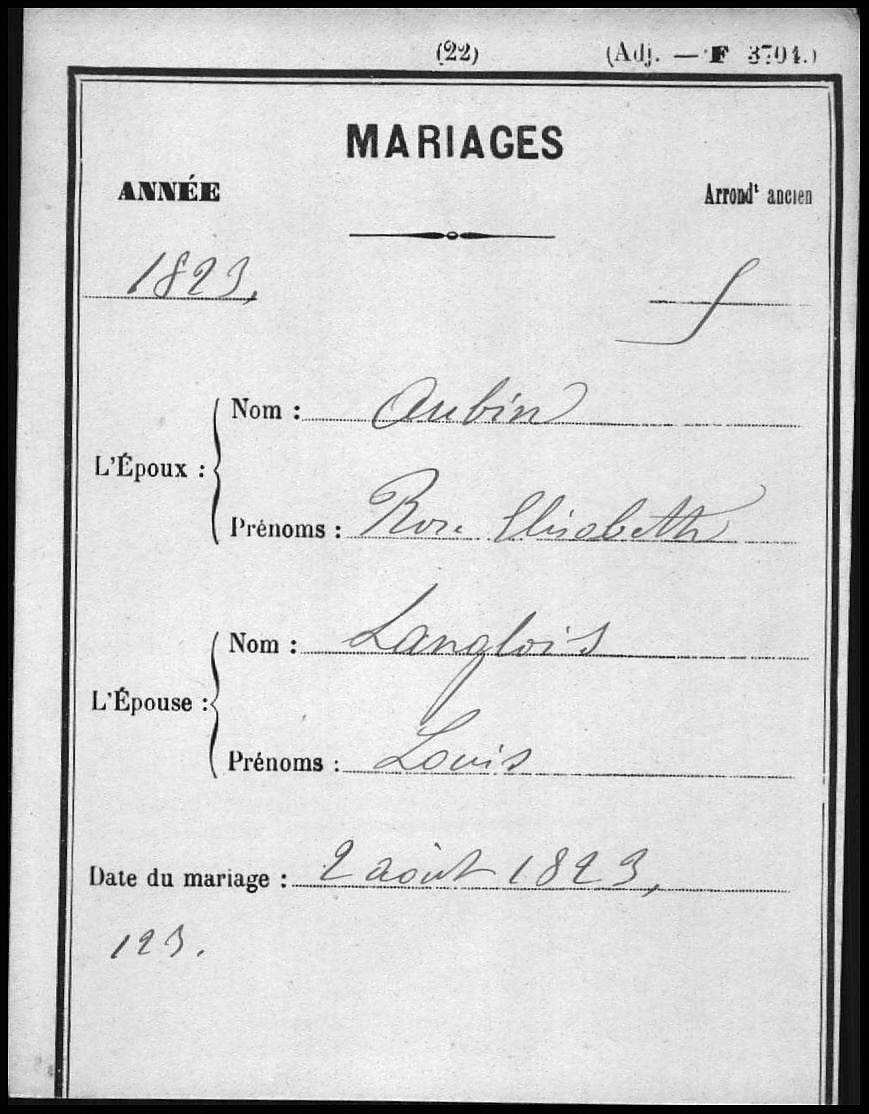 (22) (Adj. — F 3704.)
MARIAGES
ANNÉE Arrondt ancien
1823,
L'Époux :
Nom : Aubin
Prénoms : Rose Elisabeth
L'Épouse :
Nom : Langlois
Prénoms : Louis
Date du mariage : 2 août 1823,
123.